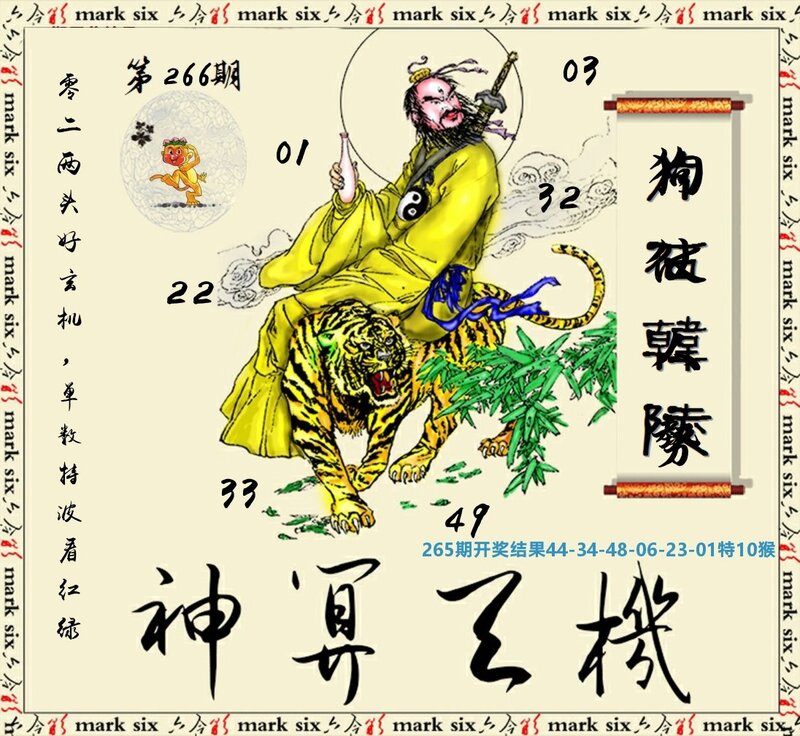 mark six mark six mark six mark six mark six
第266期
03
01
32
22
33
49
零二两头好玄机，单数特波看红绿
狗 韓
265期开奖结果44-34-48-06-23-01特10猴
神算天機
mark six mark six mark six mark six
mark six mark six mark six mark six
mark six mark six mark six mark six mark six